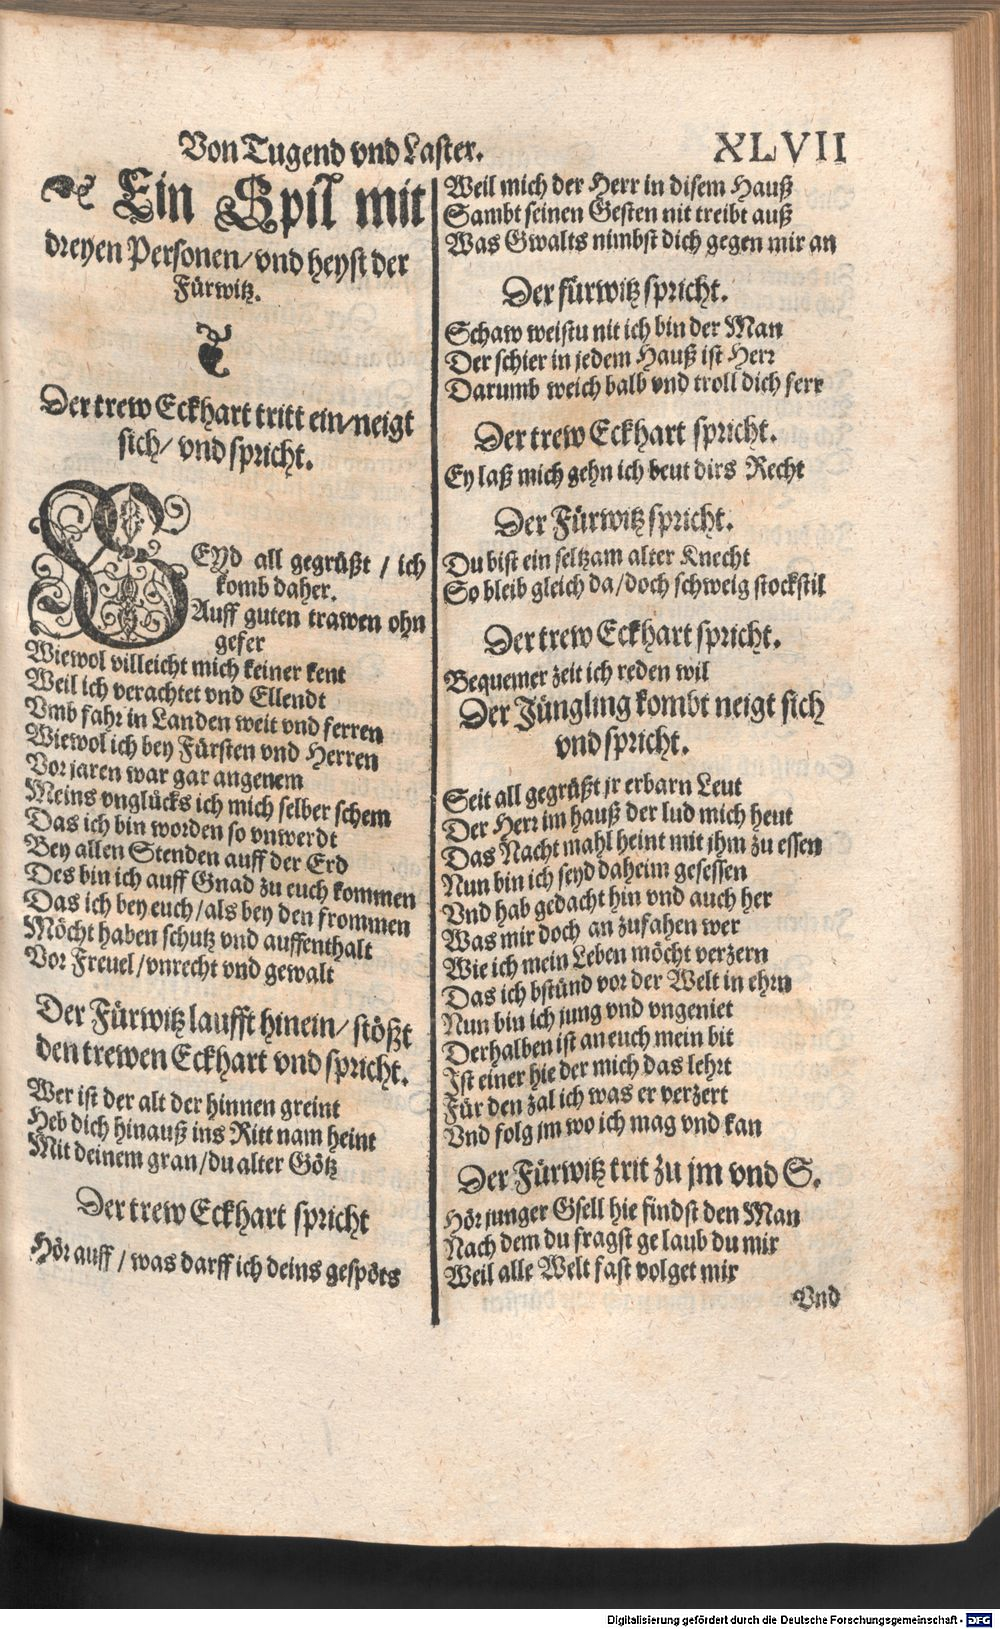 Von Tugend vnd Laster.
XLVII
Ein Spil mit
dreyen Personen/vnd heyst der
Fürwitz.
Der trew Eckhart tritt ein/neigt
sich/ vnd spricht.
SEyd all gegrüßt / ich
komb daher.
Auff guten trawen ohn
gefer
Wiewol villeicht mich keiner kent
Weil ich verachtet vnd Ellendt
Vmb fahr in Landen weit vnd ferren
Wiewol ich bey Fürsten vnd Herren
Vor jaren war gar angenem
Meins vnglücks ich mich selber schem
Das ich bin worden so vnwerdt
Bey allen Stenden auff der Erd
Des bin ich auff Gnad zu euch kommen
Das ich bey euch/als bey den frommen
Möcht haben schutz vnd auffenthalt
Vor Freuel/vnrecht vnd gewalt
Der Fürwitz laufft hinein/ stößt
den trewen Eckhart vnd spricht.
Wer ist der alt der hinnen greint
Heb dich hinauß ins Ritt nam heint
Mit deinem gran/du alter Götz
Der trew Eckhart spricht
Hör auff / was darff ich deins gespöts
Weil mich der Herr in disem Hauß
Sambt seinen Gesten nit treibt auß
Was Gwalts nimbst dich gegen mir an
Der fürwitz spricht.
Schaw weistu nit ich bin der Man
Der schier in jedem Hauß ist Herr
Darumb weich balb vnd troll dich ferr
Der trew Eckhart spricht.
Ey laß mich gehn ich beut dirs Recht
Der Fürwitz spricht.
Du bist ein seltzam alter Knecht
So bleib gleich da/doch schweig stockstil
Der trew Eckhart spricht.
Bequemer zeit ich reden wil
Der Jüngling kombt neigt sich
vnd spricht.
Seit all gegrüßt jr erbarn Leut
Der Herr im hauß der lud mich heut
Das Nacht mahl heint mit jhm zu essen
Nun bin ich seyd daheim gesessen
Vnd hab gedacht hin vnd auch her
Was mir doch an zufahen wer
Wie ich mein Leben möcht verzern
Das ich bstünd vor der Welt in ehrn
Nun bin ich jung vnd vngeniet
Derhalben ist an euch mein bit
Ist einer hie der mich das lehrt
Für den zal ich was er verzert
Vnd folg jm wo ich mag vnd kan
Der Fürwitz trit zu jm vnd S.
Hör junger Gsell hie findst den Man
Nach dem du fragst ge laub du mir
Weil alle Welt fast volget mir
Vnd
Digitalisierung gefördert durch die Deutsche Forschungsgemeinschaft - DFG